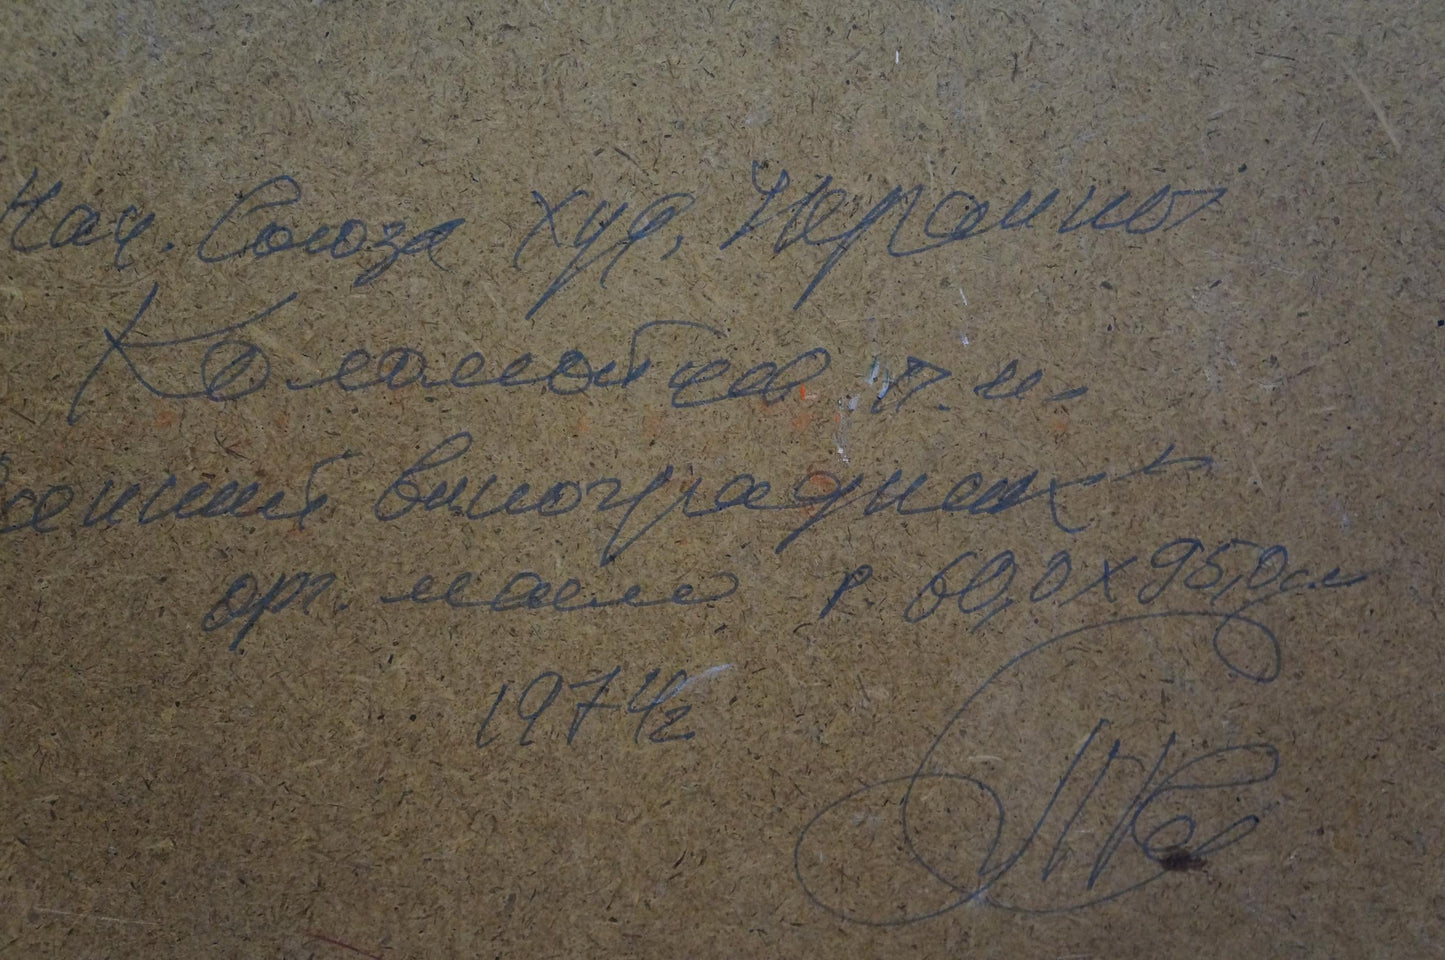 Нац. Союза худ. Украины
Коломойцев П. И.
виноградник
орг. масло р. 60,0х95,0см
1974г